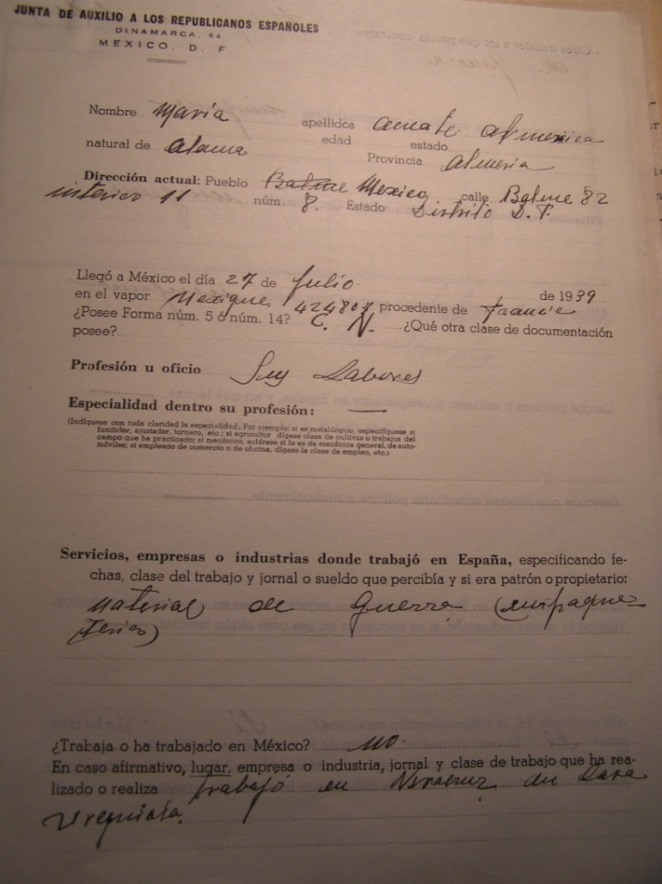 JUNTA DE AUXILIO A LOS REPUBLICANOS ESPAÑOLES
DINAMARCA, 64
MEXICO, D. F.
Nombre Maria apellidos Amate Almexica
natural de Alama edad estado
Provincia Almeria
Dirección actual: Pueblo Mexico calle Balme 82
interico 11 núm. 8. Estado Distrito D. F.
Llegó a México el día 27 de Julio de 1939
en el vapor Mexique 424807 procedente de Francie
¿Posee Forma núm. 5 ó núm. 14? C. N. ¿Qué otra clase de documentación
posee?
Profesión u oficio Sus Labores
Especialidad dentro su profesión: —
(Indíquese con toda claridad la especialidad; Por ejemplo: si es metalúrgico, especifíquese si
fundidor, ajustador, tornero, etc.; si agricultor dígase clase de cultivos o trabajos del
campo que ha practicado; si mecánico, aclárese si lo es de mecánica general, de auto-
móviles; si empleado de comercio o de oficina, dígase la clase de empleo, etc.)
Servicios, empresas o industrias donde trabajó en España, especificando fe-
chas, clase del trabajo y jornal o sueldo que percibía y si era patrón o propietario:
Material de Guerra (empaque
terias)
¿Trabaja o ha trabajado en México? no.
En caso afirmativo, lugar, empresa o industria, jornal y clase de trabajo que ha rea-
lizado o realiza trabajó en Veracruz en Casa